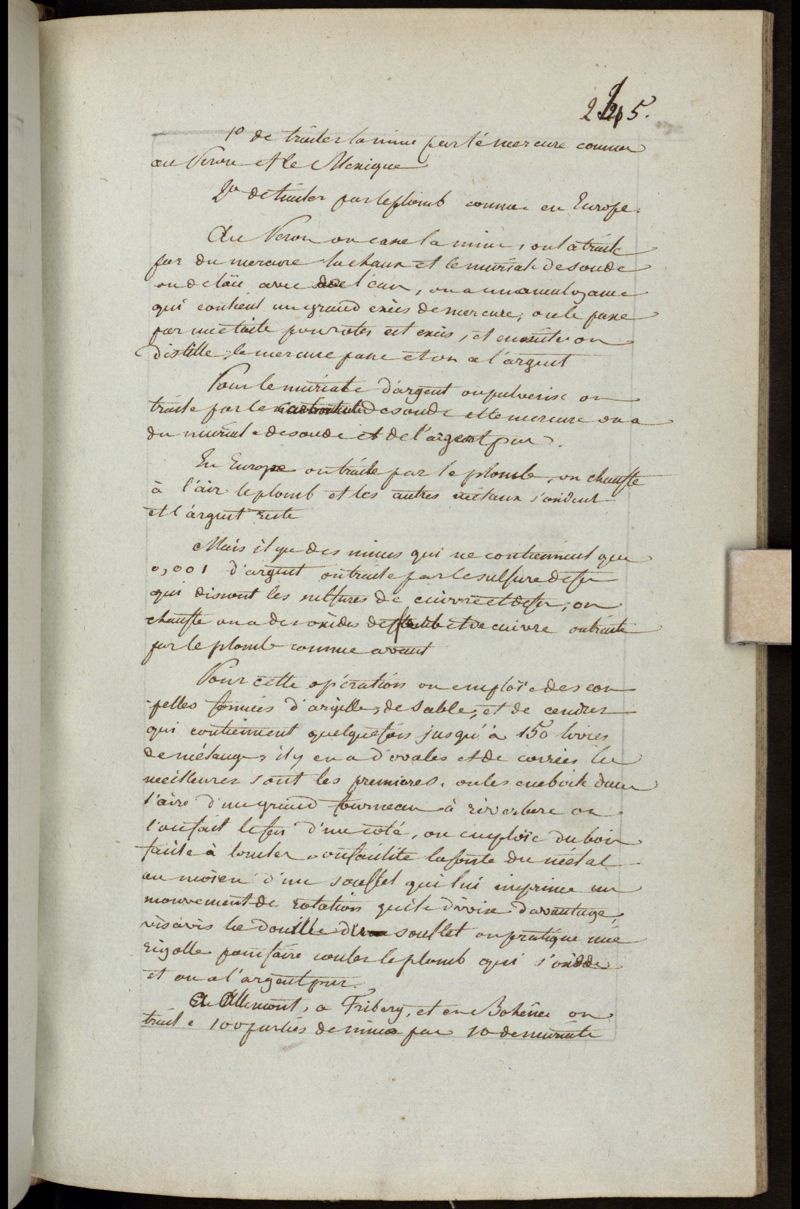 245.
1º de traiter la mine par le mercure comme
au Perou et le Mexique
2º de traiter par le plomb comme en Europe.
Au Perou on casse la mine, on la traite
par du mercure la chaux et le muriate de soude
on delaie avec de l'eau, on a un amalgame
qui contient un grand excès de mercure, on le passe
par une toile pour oter cet excès, et ensuite on
distille, le mercure passe et on a l'argent
Pour le muriate d'argent on pulverise on
traite par le de soude et le mercure on a
du muriate de soude et de l'argent pur.
En Europe on traite par le plomb, on chauffe
à l'air le plomb et les autres métaux s'oxident
et l'argent reste
Mais il y a des mines qui ne contiennent que
0,001 d'argent on traite par le sulfure de fer
qui dissout les sulfures de cuivre et de fer, on
chauffe on a des oxides de et de cuivre on traite
par le plomb comme avant
Pour cette opération on emploïe des cou
pelles formées d'argille, de sable, et de cendres
qui contiennent quelquefois jusqu'à 150 livres
de mélange, il y en a d'ovales et de carrées les
meilleures sont les premieres. on les emboite dans
l'aire d'un grand fourneau à réverbere on
fait le feu d'un coté, on emploïe du bois
facile à bruler on facilite la fonte du métal
au moïen d'un soufflet qui lui imprime un
mouvement de rotation qui le divise davantage,
visavis la douille du soufflet on pratique une
rigolle pour faire couler le plomb qui s'oxide
et on a l'argent pur.
A Allemont, a Friberg, et en Bohême on
traite 100 parties de mine par 10 de muriate